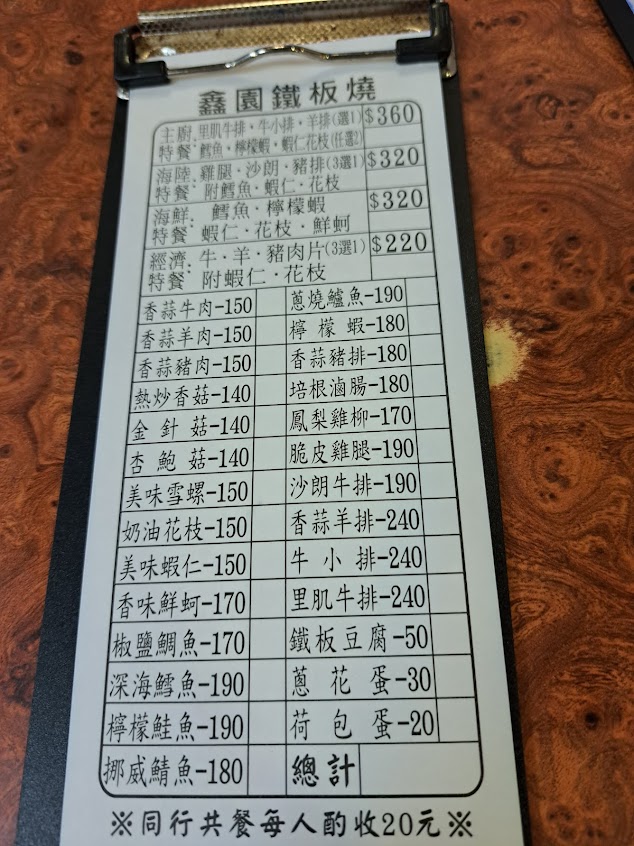 鑫園鐵板燒
主廚 特餐: 里肌牛排・牛小排・羊排(選1) $360
鱈魚・檸檬蝦・蝦仁花枝(任選2)
海陸 特餐: 雞腿・沙朗・豬排(3選1) $320
附鱈魚・蝦仁・花枝
海鮮 特餐: 鱈魚・檸檬蝦 $320
蝦仁・花枝・鮮蚵
經濟 特餐: 牛・羊・豬肉片(3選1) $220
附蝦仁・花枝
香蒜牛肉-150 蔥燒鱸魚-190
香蒜羊肉-150 檸檬蝦-180
香蒜豬肉-150 香蒜豬排-180
熱炒香菇-140 培根滷腸-180
金針菇-140 鳳梨雞柳-170
杏鮑菇-140 脆皮雞腿-190
美味雪螺-150 沙朗牛排-190
奶油花枝-150 香蒜羊排-240
美味蝦仁-150 牛小排-240
香味鮮蚵-170 里肌牛排-240
椒鹽鯛魚-170 鐵板豆腐-50
深海鱈魚-190 蔥花蛋-30
檸檬鮭魚-190 荷包蛋-20
挪威鯖魚-180 總計
※同行共餐每人酌收20元※